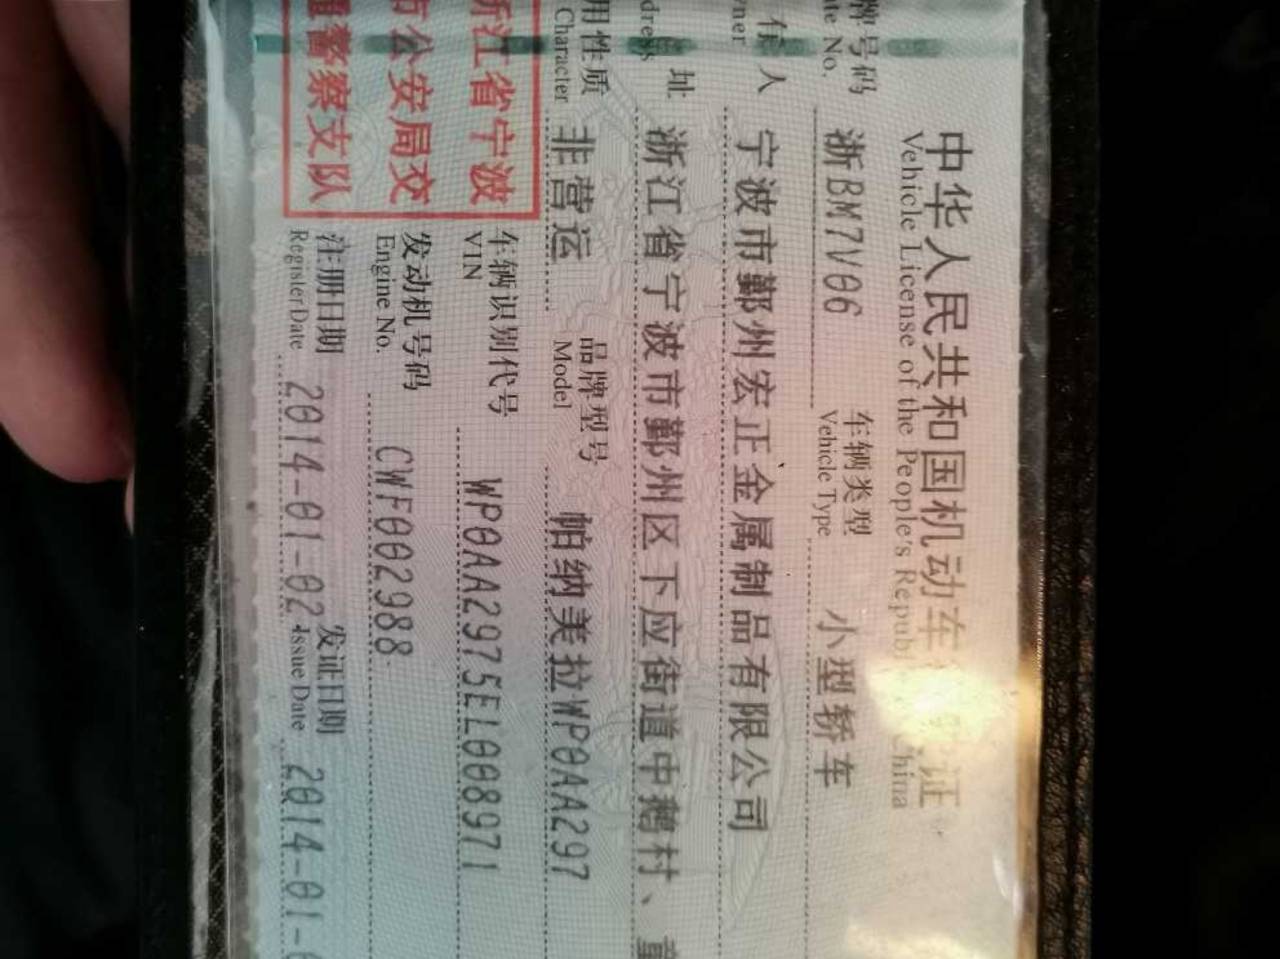 中华人民共和国机动车
Vehicle License of the People's Republ China
牌号码 浙BM7V06 车辆类型 小型轿车
ate No. Vehicle Type
有人 宁波市鄞州宏正金属制品有限公司
wner
址 浙江省宁波市鄞州区下应街道中鹅村、
dress
用性质 非营运 品牌型号 帕纳美拉WP0AA297
Character Model
浙江省宁波
市公安局交
警察支队
车辆识别代号 WP0AA2975EL008971
VIN
发动机号码 CWF002988
Engine No.
注册日期 2014-01-02 发证日期 2014-01-
Register Date Issue Date